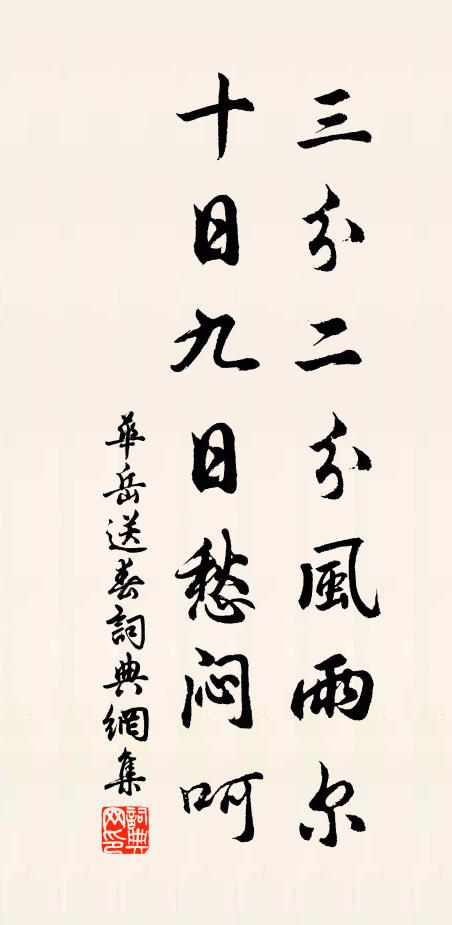 三分二分風雨尔
十日九日愁闷呵
華岳送春詞典網集
詞典網印